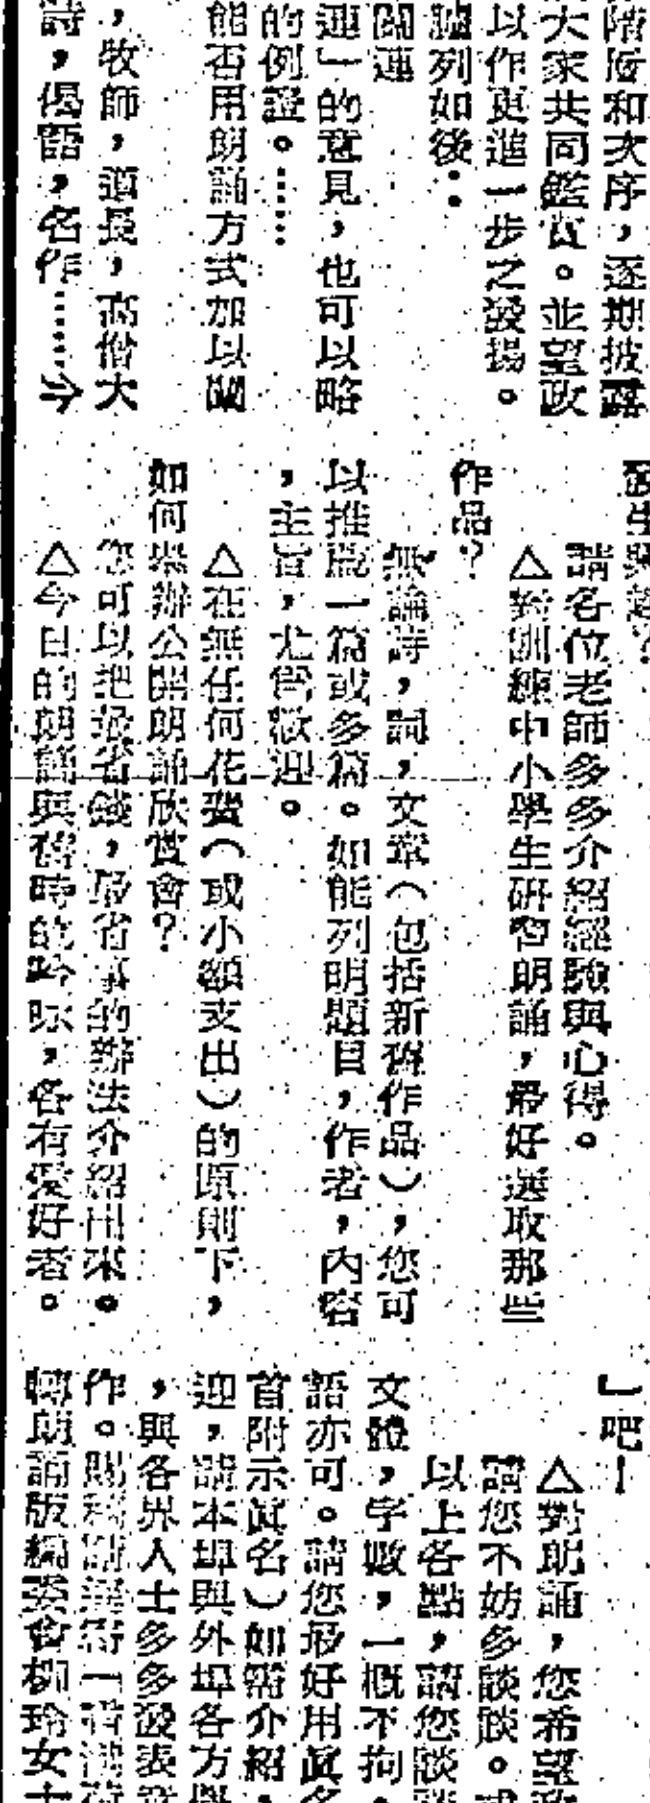 階層和次序，逐期披露
大家共同鑑賞。並望政
以作更進一步之發揚。
臚列如後：
關連
連」的意見，也可以略
的例證。……
能否用朗誦方式加以闡
，牧師，道長，高僧大
詩，偈語，名作……介
發生興趣？
請各位老師多多介紹經驗與心得。
△對訓練中小學生研習朗誦，最好選取那些
作品？
無論詩，詞，文章（包括新舊作品），您可
以推薦一篇或多篇。如能列明題目，作者，內容
，主旨，尤為歡迎。
△在無任何花費（或小額支出）的原則下，
如何舉辦公開朗誦欣賞會？
您可以把最省錢，最省事的辦法介紹出來。
△今日的朗誦與舊時的吟咏，各有愛好者。
」吧！
△對朗誦，您希望政
請您不妨多談談。或
以上各點，請您談談
文體，字數，一概不拘，
語亦可。請您最好用眞名
首附示眞名）如需介紹，
迎，請本埠與外埠各方學
，與各界人士多多發表意
作。賜稿請逕寄
轉朗誦版編委會柳玲女士